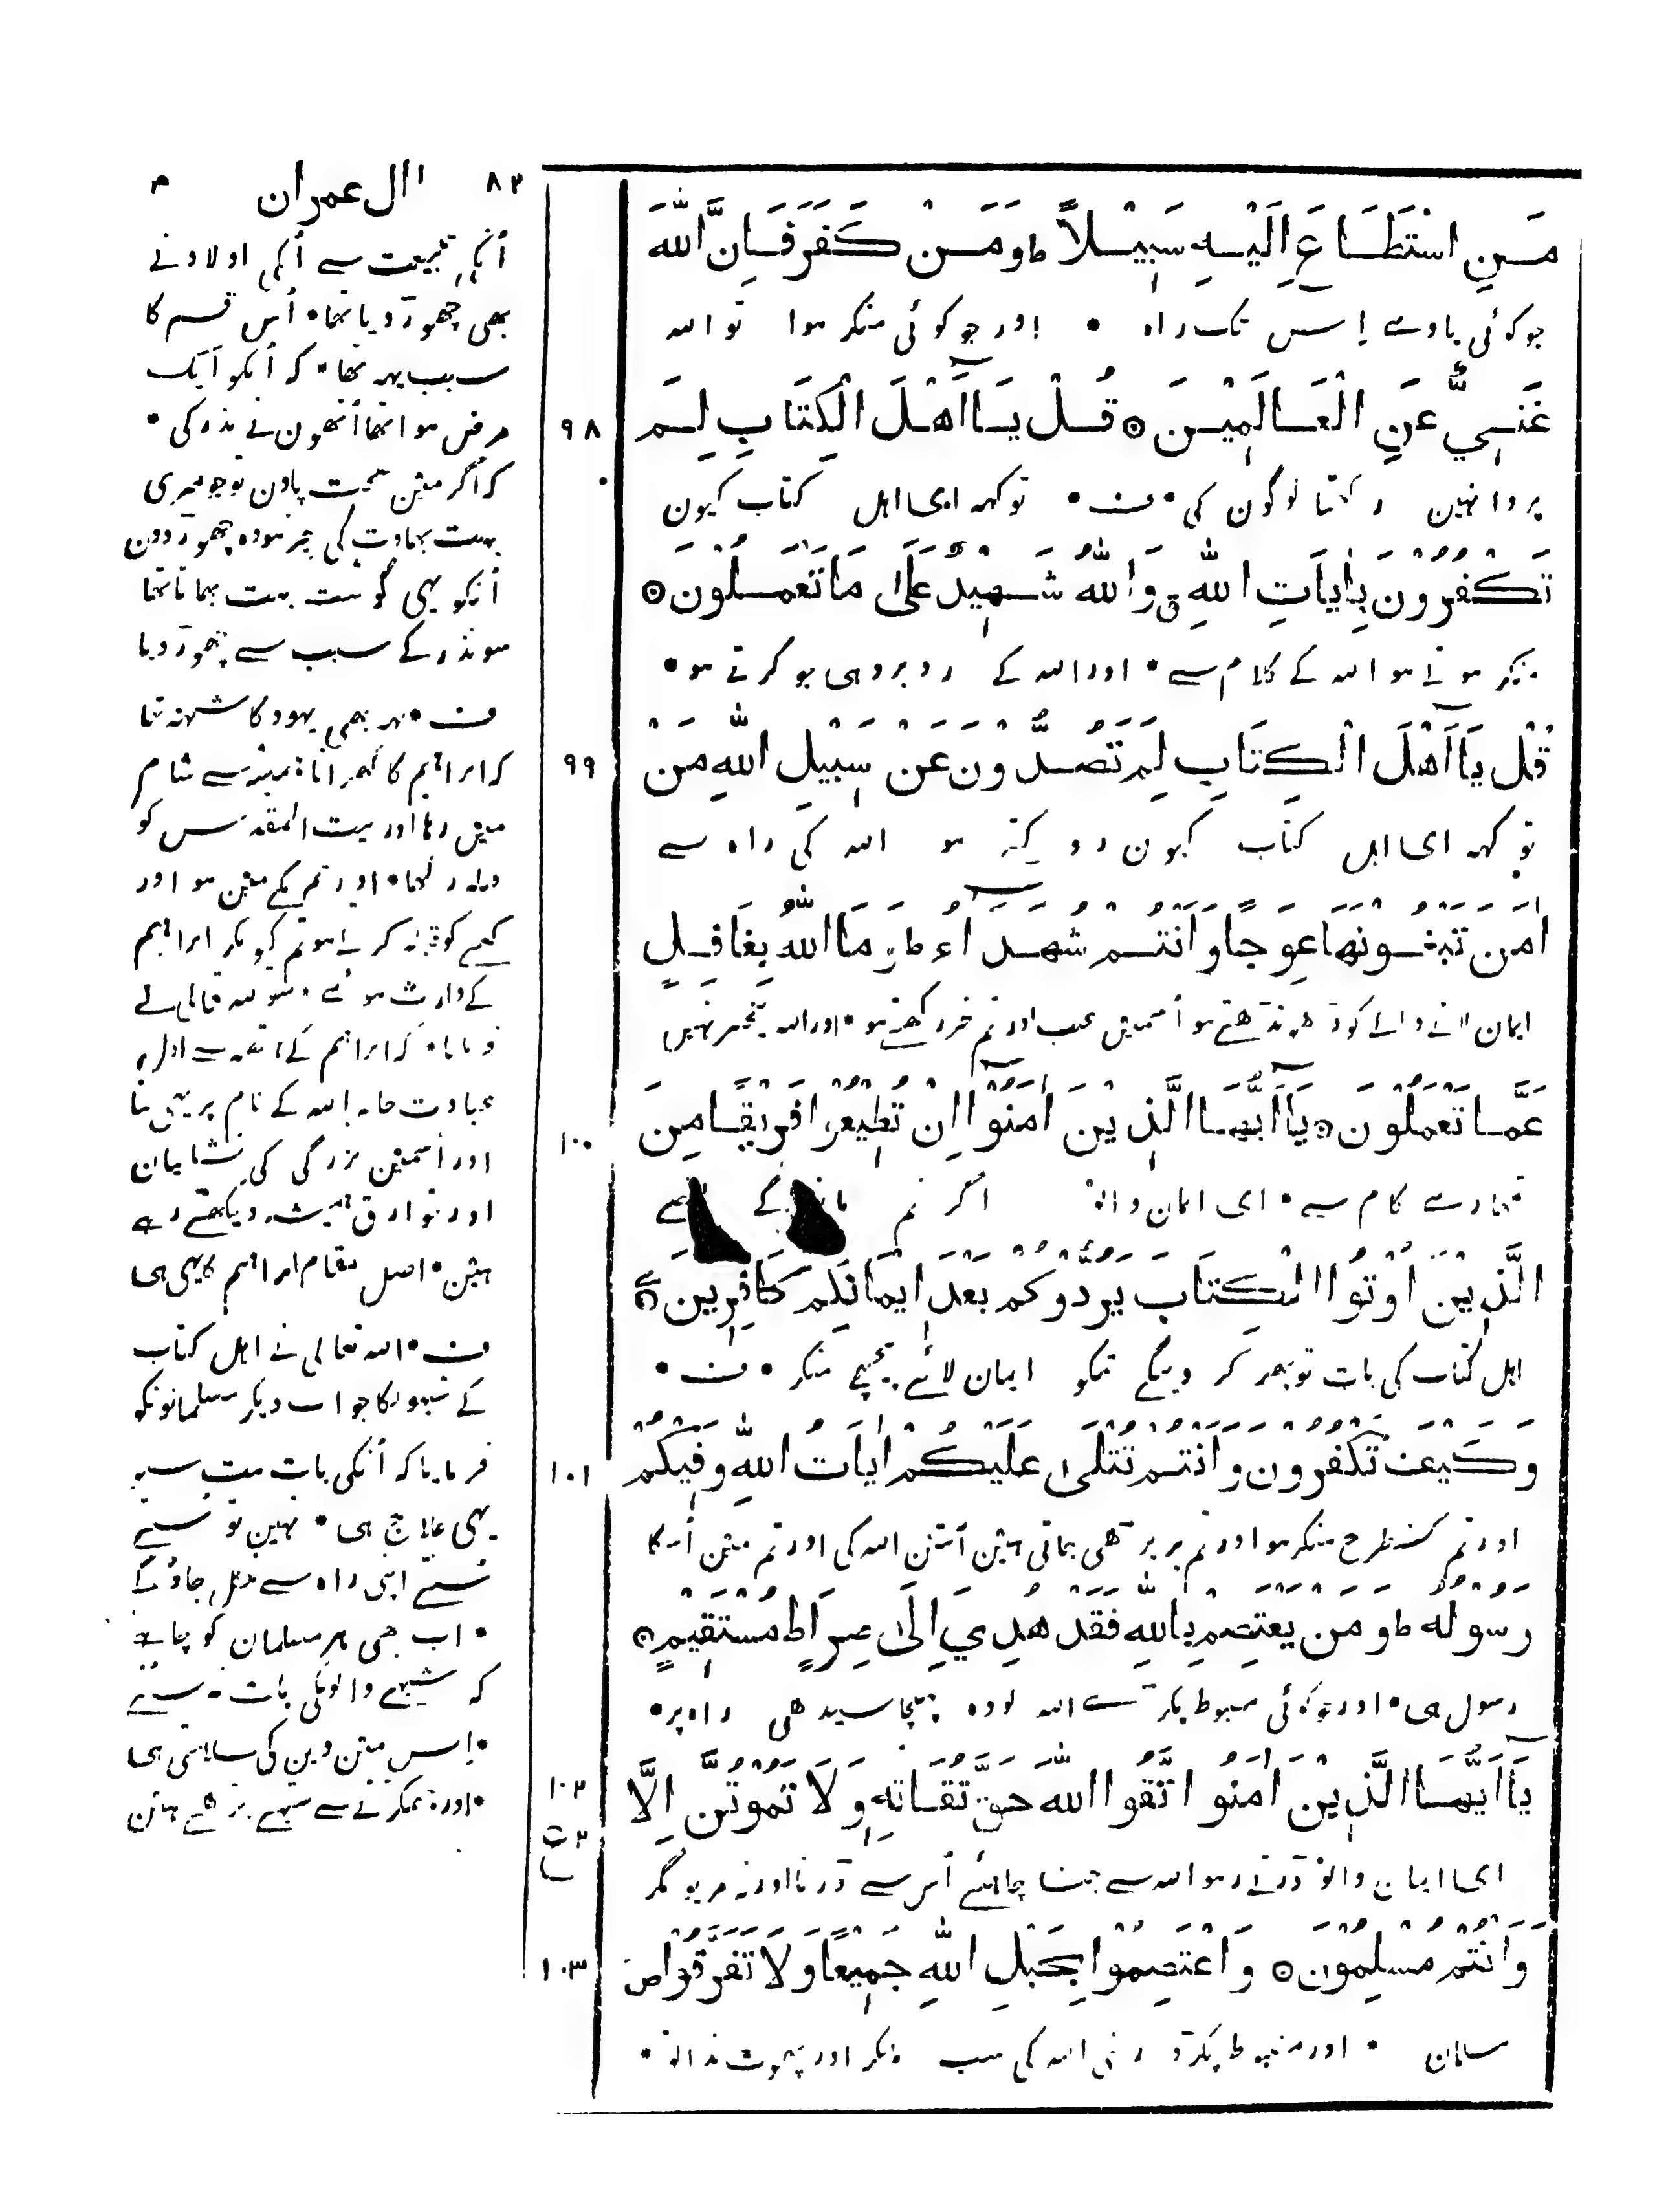 مَنِ اسْتَطَاعَ إِلَيْهِ سَبِيْلًا ط وَمَنْ كَفَرَ فَاِنَّ اللّٰهَ
جو کوئی پاوے اِس تک راہ • اور جو کوئی منکر ہوا تو اللہ
غَنِيٌّ عَنِ الْعَالَمِيْنَ ۞ قُلْ يَا اَهْلَ الْكِتَابِ لِمَ
٩٨
پروا نہین رکھتا لوگون کی • ف • تو کہہ ای اہل کتاب کیون
تَكْفُرُوْنَ بِاٰيَاتِ اللّٰهِ ق وَاللّٰهُ شَهِيْدٌ عَلَىٰ مَا تَعْمَلُوْنَ ۞
منکر ہوتے ہو اللہ کے کلام سے • اور اللہ کے روبرو ہی جو کرتے ہو •
قُلْ يَا اَهْلَ الْكِتَابِ لِمَ تَصُدُّوْنَ عَنْ سَبِيْلِ اللّٰهِ مَنْ
٩٩
تو کہہ ای اہل کتاب کیون روکتے ہو اللہ کی راہ سے
اٰمَنَ تَبْغُوْنَهَا عِوَجًا وَاَنْتُمْ شُهَدَاءُ ط وَمَا اللّٰهُ بِغَافِلٍ
ایمان لانے والے کو ڈھونڈھتے ہو اُسمین عیب اور تم خبر رکھتے ہو • اور اللہ بیخبر نہین
عَمَّا تَعْمَلُوْنَ ۞ يَا اَيُّهَا الَّذِيْنَ اٰمَنُوْا اِنْ تُطِيْعُوْا فَرِيْقًا مِنَ
١٠٠
تمہارے کام سے • ای ایمان والو اگر تم
الَّذِيْنَ اُوْتُوا الْكِتَابَ يَرُدُّوْكُمْ بَعْدَ اِيْمَانِكُمْ كَافِرِيْنَ ۞
اہل کتاب کی بات تو پھر کر دینگے تمکو ایمان لائے پیچھے منکر • ف •
وَكَيْفَ تَكْفُرُوْنَ وَاَنْتُمْ تُتْلَىٰ عَلَيْكُمْ اٰيَاتُ اللّٰهِ وَفِيْكُمْ
١٠١
اور تم کسطرح منکر ہو اور تم پر پڑھی جاتی ہین آیتین اللہ کی اور تم مین اُسکا
رَسُوْلُهُ ط وَمَنْ يَعْتَصِمْ بِاللّٰهِ فَقَدْ هُدِيَ اِلَىٰ صِرَاطٍ مُسْتَقِيْمٍ ۞
رسول ہی • اور جو کوئی مضبوط پکڑے اللہ کو وہ پہنچا سیدھی راہ پر •
يَا اَيُّهَا الَّذِيْنَ اٰمَنُوا اتَّقُوا اللّٰهَ حَقَّ تُقَاتِهِ وَلَا تَمُوْتُنَّ اِلَّا
١٠٢
ای ایمان والو ڈرتے رہو اللہ سے جیسا چاہئے اُس سے ڈرنا اور نہ مریو مگر
وَاَنْتُمْ مُسْلِمُوْنَ ۞ وَاعْتَصِمُوْا بِحَبْلِ اللّٰهِ جَمِيْعًا وَلَا تَفَرَّقُوْا ص
١٠٣
مسلمان • اور مضبوط پکڑو رسی اللہ کی سب ملکر اور پھوٹ نہ ڈالو •
٨٢ اٰل عمران ٣
اُنکی تبعیت سے اُنکی اولاد نے
بھی چھوڑ دیا تھا • اُس قسم کا
سبب یہہ تھا • کہ اُنکو ایک
مرض ہوا تھا اُنھون نے نذر کی •
کہ اگر مین صحت پاون تو جو میری
بہت بھاوت کی چیز ہو وہ چھوڑ دون
اُنکو یہی گوشت بہت بھاتا تھا
سو نذر کے سبب سے چھوڑ دیا
ف • یہہ بھی یہود کا شبہہ تھا
کہ ابراہیم کا گھرانا ہمیشہ سے شام
مین رہا اور بیت المقدس کو
قبلہ رکھا • اور تم مکے مین ہو اور
کعبے کو قبلہ کرتے ہو تم کیونکر ابراہیم
کے وارث ہوئے • سو اللہ تعالی نے
فرمایا • کہ ابراہیم کے ہاتھہ سے اول
عبادت خانہ اللہ کے نام پر یہی بنا
اور اُسمین بزرگی کی نشانیان
اور خوارق ہمیشہ دیکھتے رہے
ہین • اصل مقام ابراہیم کا یہی ہی
ف • اللہ تعالی نے اہل کتاب
کے شبہونکا جواب دیکر مسلمانونکو
فرمایا کہ اُنکی بات مت سنو
یہی علاج ہی • نہین تو سنتے
سنتے اپنی راہ سے نکل جاؤگے
• اب بھی ہر مسلمان کو چاہئے
کہ شبہے والونکی بات نہ سنے
• اِس مین دین کی سلامتی ہی
• اور جھگڑنے سے شبہے بڑھتے ہین